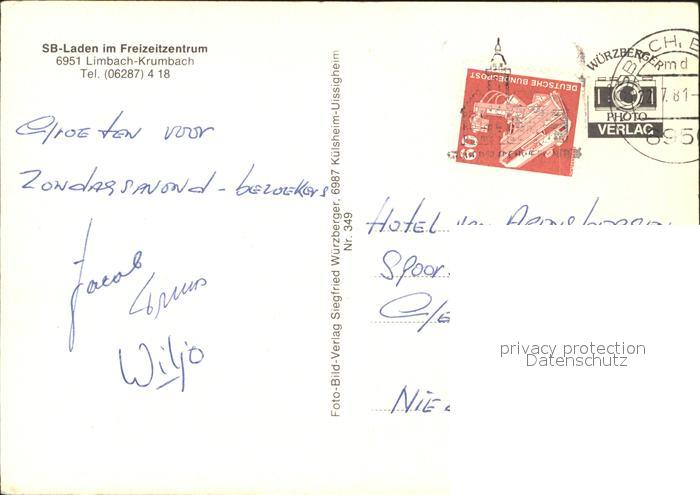 SB-Laden im Freizeitzentrum
6951 Limbach-Krumbach
Tel. (06287) 4 18
Groeten voor
Zondagsavond-bezoekers
Jacob
Wiljo
Foto-Bild-Verlag Siegfried Würzberger, 6987 Külsheim-Uissigheim
Nr. 349
DEUTSCHE BUNDESPOST
60
WÜRZBERGER
PHOTO
VERLAG
7.81
695
Hotel van
Spoor
Nie
privacy protection
Datenschutz